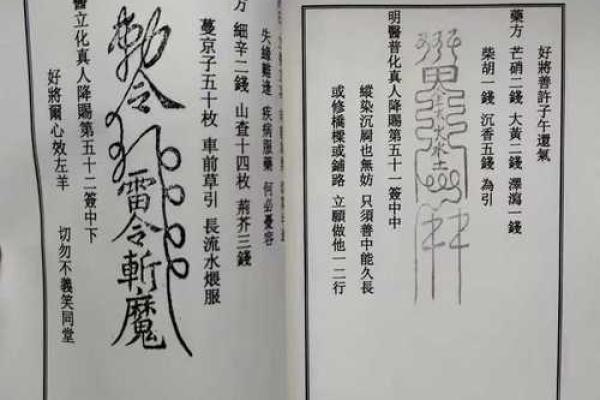 好將善許子午還氣
藥方 芒硝二錢 大黃二錢 澤瀉一錢
柴胡一錢 沉香五錢 為引
明醫普化真人降賜第五十一簽中中
縱染沉屙也無妨 只須善中能久長
或修橋樑或鋪路 立願做他一二行
失緣難逢 疾病服藥 何必憂容
方 細辛二錢 山查十四枚 荊芥三錢
蔓京子五十枚 車前草引 長流水煨服
敕令
雷令斬魔
醫立化真人降賜第五十二簽中下
好將爾心效左羊 切勿不義笑同堂